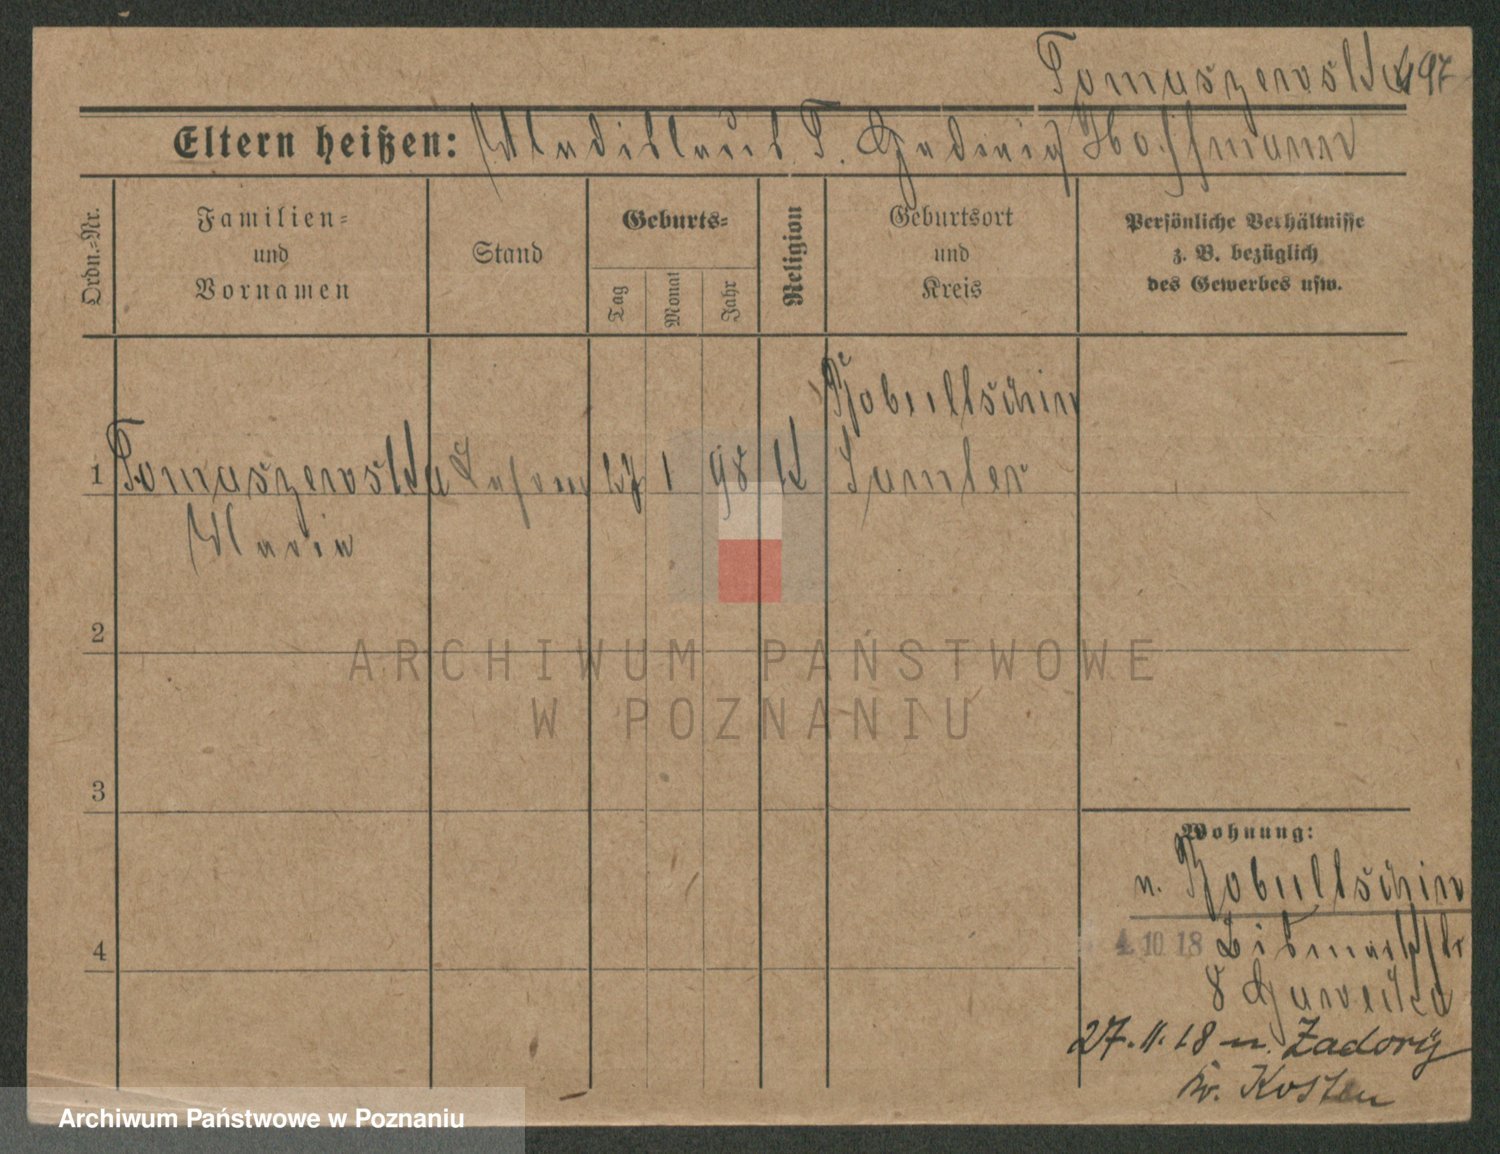 Tomaszewska 97
Eltern heißen: Wladislaus T. Hedwig Hoffmann
Ordn.=Nr.
Familien=
und
Vornamen
Stand
Geburts=
Tag
Monat
Jahr
Religion
Geburtsort
und
Kreis
Persönliche Verhältnisse
z. B. bezüglich
des Gewerbes usw.
1 Tomaszewska 27 1 98 K
Maria
Samter
2
3
4
Wohnung:
n.
4. 10. 18 Bismarckstr
8
27.11.18 n. Zadory
Kr. Kosten
ARCHIWUM PAŃSTWOWE
W POZNANIU
Archiwum Państwowe w Poznaniu